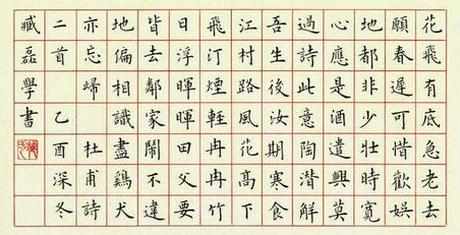 花飛有底急老去
願春遲可惜歡娛
地都非少壯時寬
心應是酒遣興莫
過詩此意陶潛解
吾生後汝期寒食
江村路風花高下
飛汀煙輕冉冉竹
日浮暉暉田父要
皆去鄰家鬧不違
地偏相識盡鷄犬
亦忘歸 杜甫詩
二首 乙酉深冬
臧磊學書